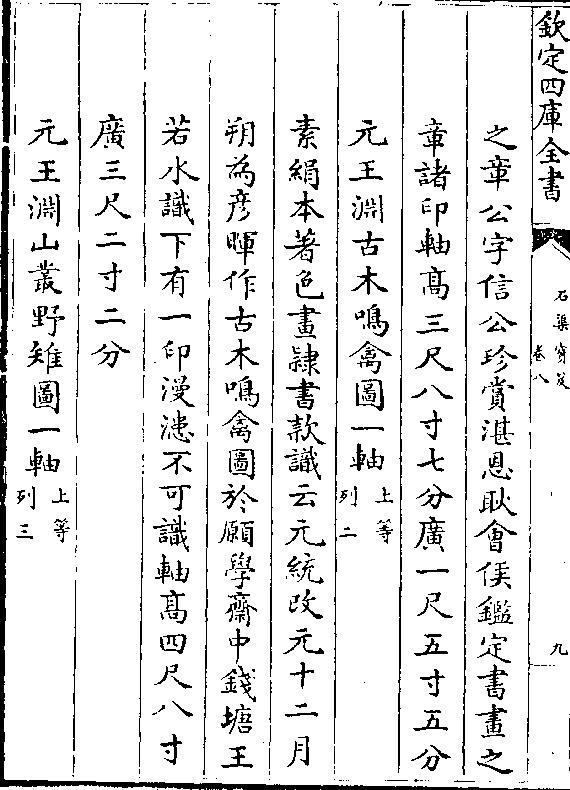 欽定四庫全書
石渠寳笈
卷八
九
之章公字信公珍賞湛恩耿會侯鑑定書畫之
章諸印軸髙三尺八寸七分廣一尺五寸五分
元王淵古木鳴禽圖一軸 上等
列二
素絹本著色畫隷書款識云元統改元十二月
朔為彦暉作古木鳴禽圖於願學齋中錢塘王
若水識下有一印漫漶不可識軸髙四尺八寸
廣三尺二寸二分
元王淵山叢野雉圖一軸 上等
列三